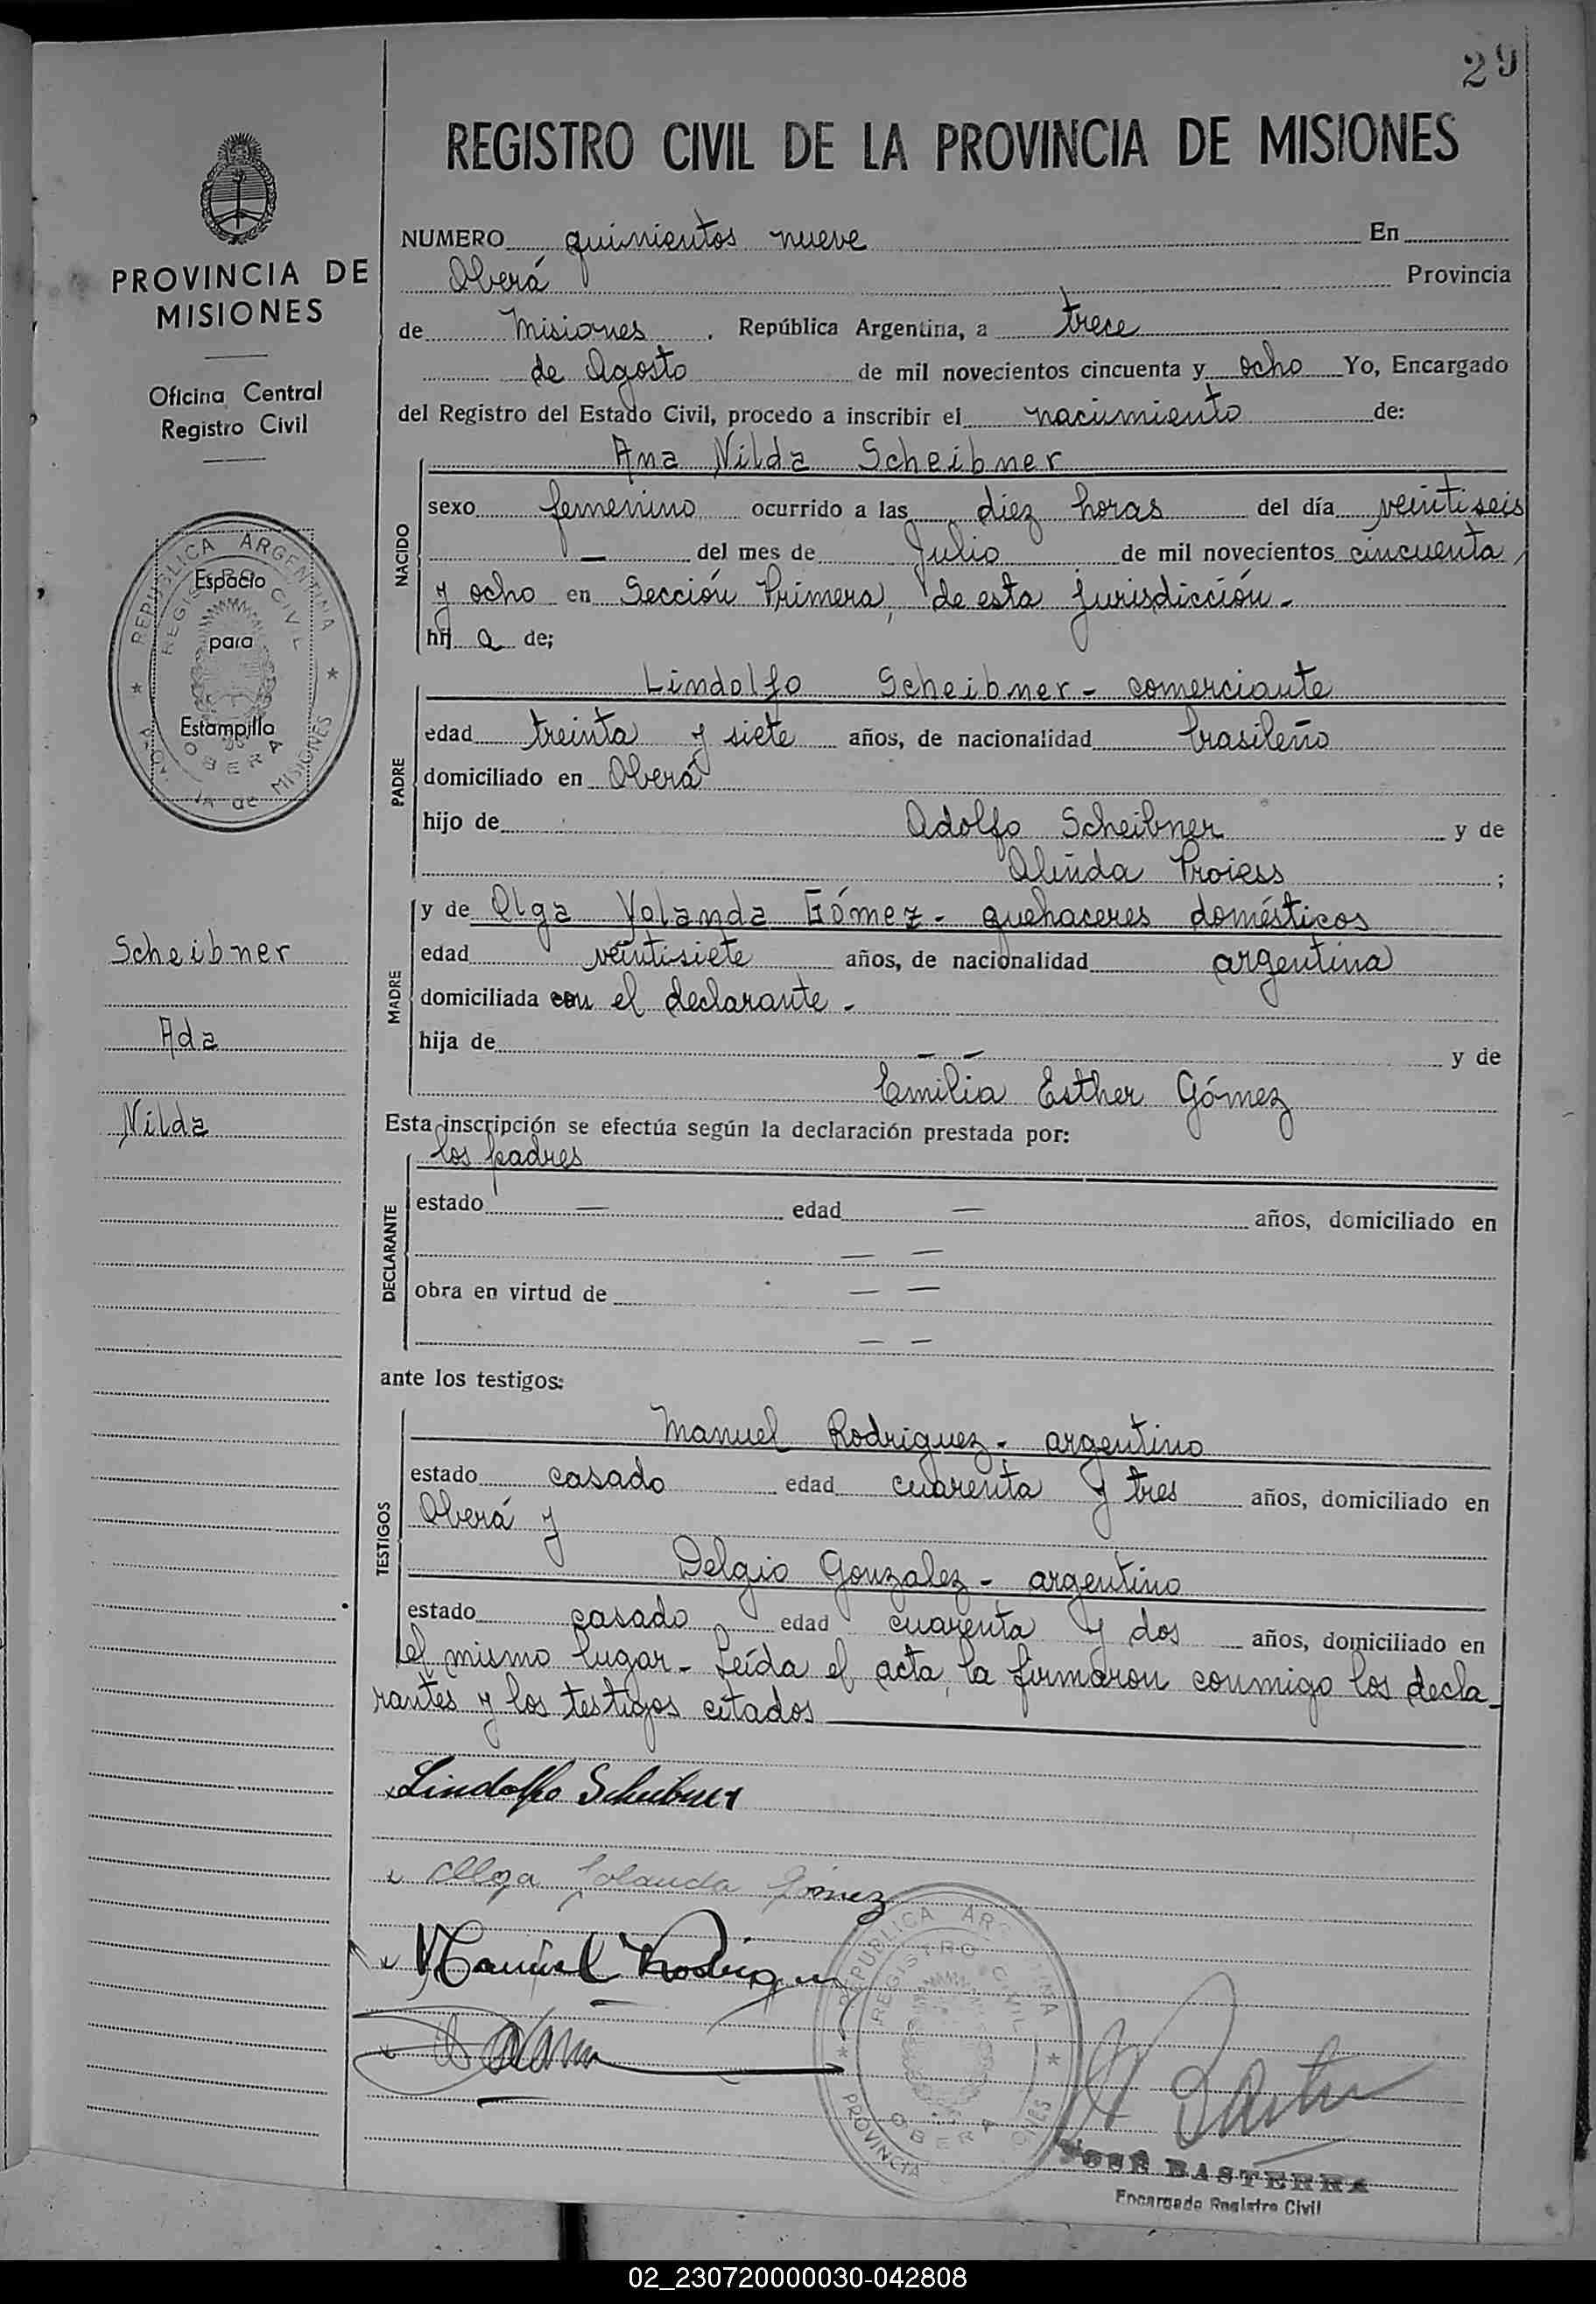 29
REGISTRO CIVIL DE LA PROVINCIA DE MISIONES
PROVINCIA DE
MISIONES
Oficina Central
Registro Civil
REPUBLICA ARGENTINA
REGISTRO CIVIL
Espacio
para
Estampilla
OBERA
de MISIONES
Scheibner
Ada
Nilda
NUMERO quinientos nueve En
Oberá Provincia
de Misiones, República Argentina, a trece
de Agosto de mil novecientos cincuenta y ocho Yo, Encargado
del Registro del Estado Civil, procedo a inscribir el nacimiento de:
NACIDO
Ana Nilda Scheibner
sexo femenino ocurrido a las diez horas del día veintiseis
— del mes de Julio de mil novecientos cincuenta
y ocho en Sección Primera, de esta jurisdicción.-
hij a de;
PADRE
Lindolfo Scheibner - comerciante
edad treinta y siete años, de nacionalidad brasileño
domiciliado en Oberá
hijo de Adolfo Scheibner y de
Alinda Proiess ;
MADRE
y de Olga Yolanda Gómez - quehaceres domésticos
edad veintisiete años, de nacionalidad argentina
domiciliada con el declarante -
hija de — — y de
Emilia Esther Gómez
Esta inscripción se efectúa según la declaración prestada por:
DECLARANTE
los padres
estado — edad — años, domiciliado en
— —
obra en virtud de — —
— —
ante los testigos:
TESTIGOS
Manuel Rodriguez - argentino
estado casado edad cuarenta y tres años, domiciliado en
Oberá y
Delgio Gonzalez - argentino
estado casado edad cuarenta y dos años, domiciliado en
el mismo lugar - Leída el acta, la firmaron conmigo los decla-
rantes y los testigos citados
Lindolfo Scheibner
Olga Yolanda Gómez
Manuel Rodriguez
REPUBLICA ARGENTINA
REGISTRO CIVIL
OBERA
PROVINCIA
JOSÉ BASTERRA
Encargado Registro Civil
02_230720000030-042808